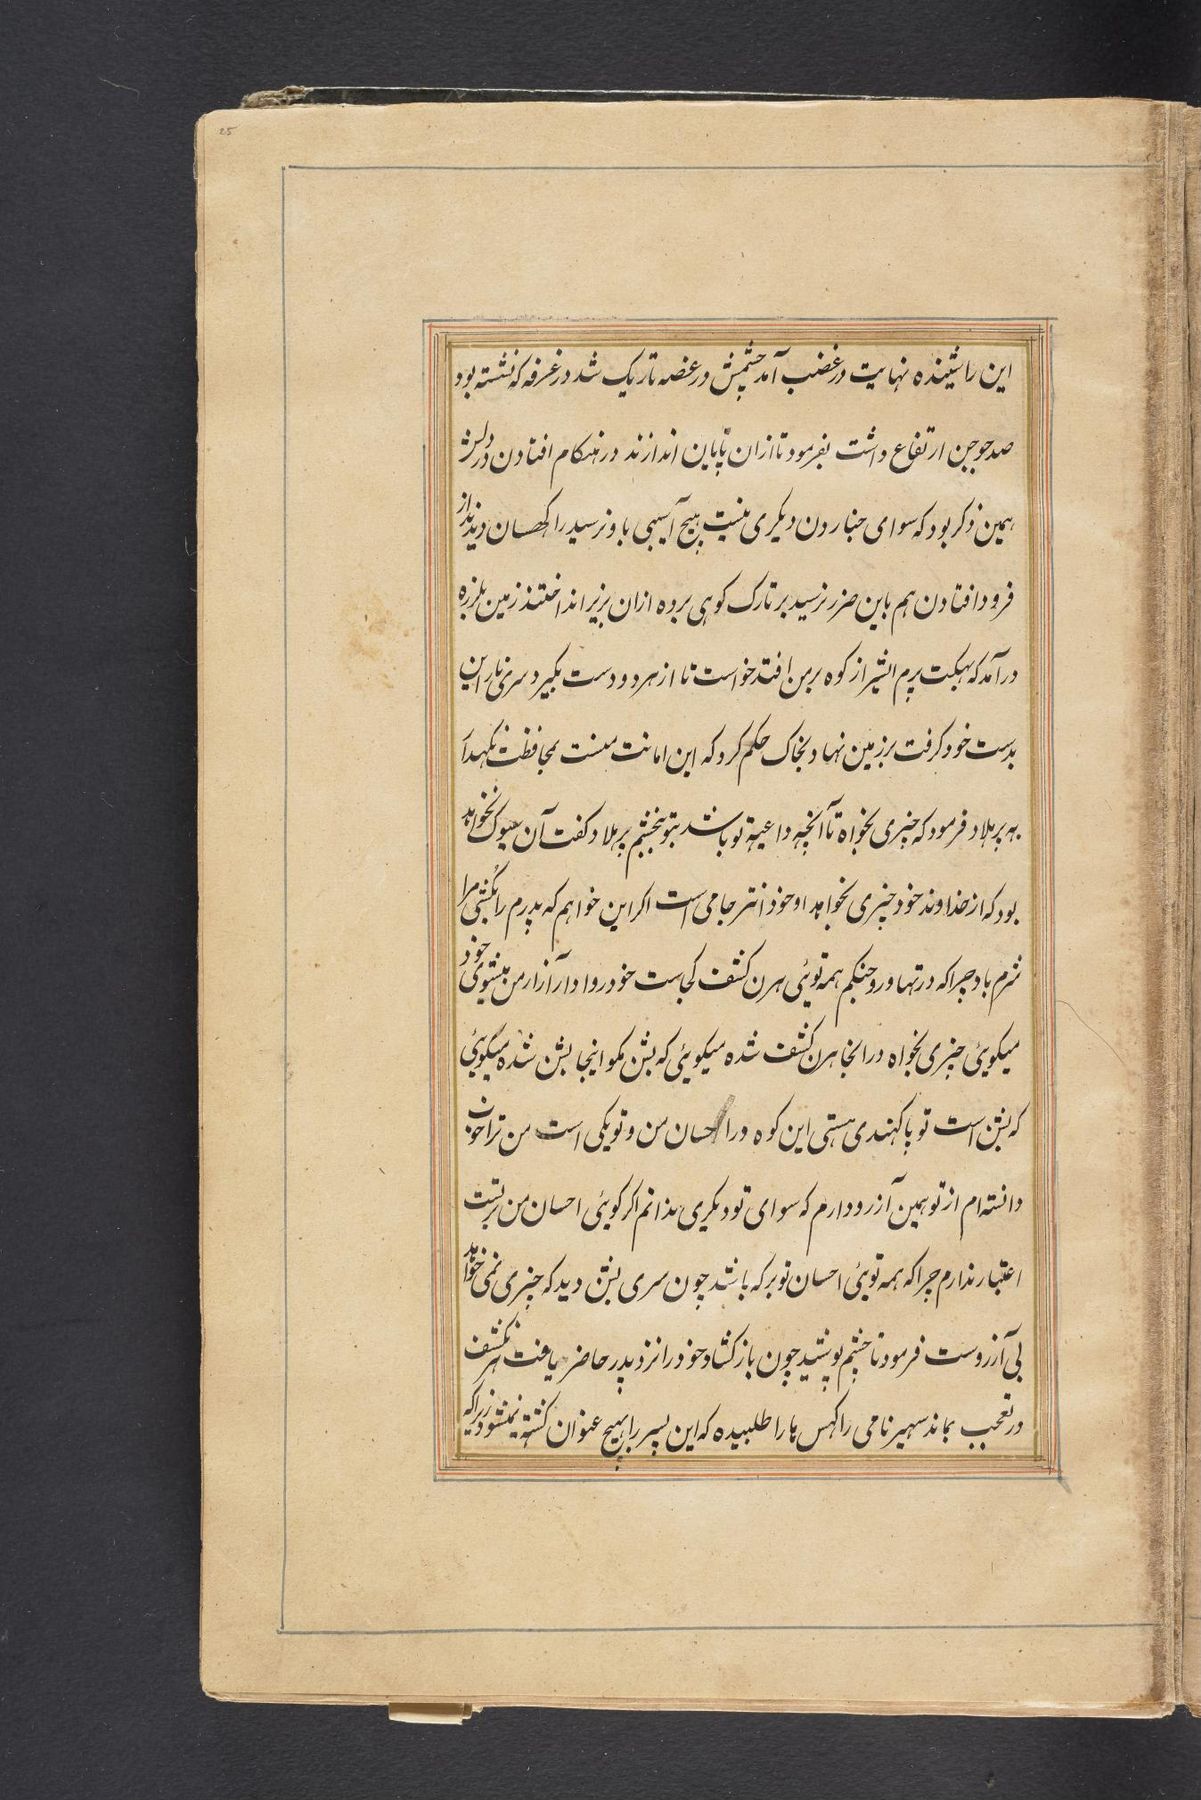 25
این را شنیده نهایت در غضب آمد چشمش در غصه تاریک شد در غرفه که نشسته بود
صد جوجن ارتفاع داشت بفرمود تا ازان پایان اندازند در هنکام افتادن در دلش
همین ذکر بود که سوای جناردن دیکری نیست هیچ آسیبی باو نرسید راکهسان دیدند از
فرود افتادن هم باین ضرر نرسید بر تارک کوهی برده ازان بزیر انداختند زمین بلرزه
درآمد که بهکت پرم ایشر از کوه بر من افتد خواست تا از هر دو دست بکیرد سری ناراین
بدست خود کرفت بر زمین نهاد بخاک حکم کرد که این امانت منست بمحافظت نکهدار
به پرهلاد فرمود که چیزی بخواه تا آنچه داعیهٔ تو باشد بتو بخشم پرهلاد کفت آن سیوک نخواهد
بود که از خداوند خود چیزی بخواهد او خود انترجامی است اکر این خواهم که پدرم را بکشی مرا
شرم باد چرا که در تنها و روحنکم همه توئی هرن کشف کجاست خود روادار آزار من میشوی خود
میکوئی چیزی بخواه در انجا هرن کشف شده میکوئی که بشن مکو اینجا بشن شده میکوئی
که بشن است تو پاکهندی هستی این کوه و را حسان من و تو یکی است من ترا خوب
دانسته ام از تو همین آرزو دارم که سوای تو دیکری ندانم اکر کوئی احسان من برتست
اعتبار ندارم چرا که همه توئی احسان تو بر که باشد چون سری بشن دید که چیزی نمی خواهد
بی آرزوست فرمود تا چشم پوشید چون باز کشاد خود را نزد پدر حاضر یافت هرنکشف
در تعجب بماند سهیر نامی راکهس را طلبیده که این پسر را بهیچ عنوان کشته نمیشود زیراکه